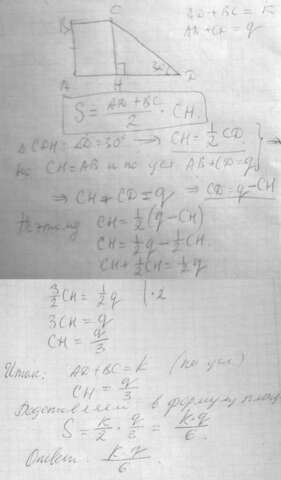 B C
AD + BC = k
AB + CD = q
A H D
S = \frac{AD + BC}{2} \cdot CH.
△CDH: ∠D = 30° → CH = \frac{1}{2} CD.
Но CH = AB и по усл AB + CD = q
⇒ CH + CD = q ⇒ CD = q - CH
Поэтому CH = \frac{1}{2}(q - CH)
CH = \frac{1}{2}q - \frac{1}{2}CH.
CH + \frac{1}{2}CH = \frac{1}{2}q
\frac{3}{2}CH = \frac{1}{2}q | · 2
3CH = q
CH = \frac{q}{3}
Итак: AD + BC = k (по усл)
CH = \frac{q}{3}
Подставляем в формулу площ
S = \frac{k}{2} \cdot \frac{q}{3} = \frac{k \cdot q}{6}.
Ответ: \frac{k \cdot q}{6}.